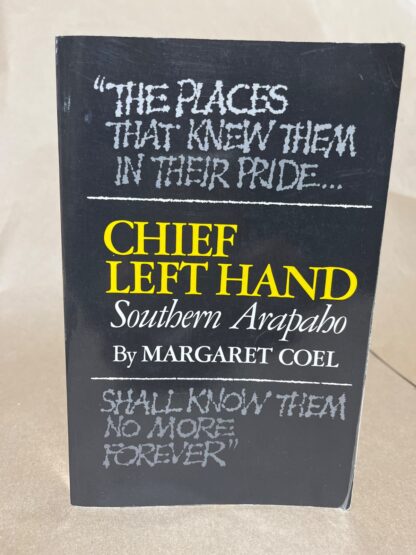 "THE PLACES
THAT KNEW THEM
IN THEIR PRIDE...
CHIEF
LEFT HAND
Southern Arapaho
By MARGARET COEL
SHALL KNOW THEM
NO MORE
FOREVER"